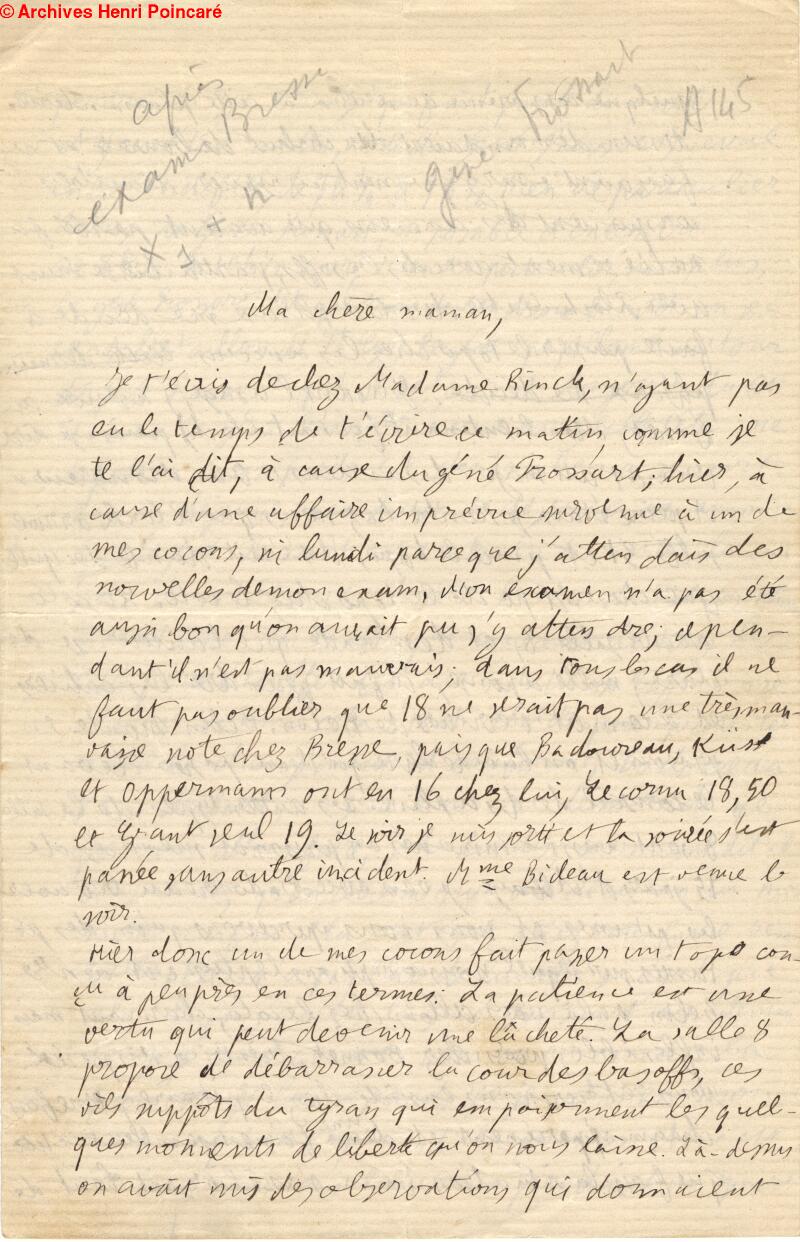 © Archives Henri Poincaré
après
examen Bresse
X 1 + n
géné Frossart
A145
Ma chère maman,
Je t'écris de chez Madame Rinck, n'ayant pas
eu le temps de t'écrire ce matin, comme je
te l'ai dit, à cause du géné Frossart; hier, à
cause d'une affaire imprévue survenue à un de
mes cocons, ni lundi parce que j'attendais des
nouvelles de mon exam. Mon examen n'a pas été
aussi bon qu'on aurait pu s'y attendre; cepen-
dant il n'est pas mauvais; dans tous les cas il ne
faut pas oublier que 18 ne serait pas une très mau-
vaise note chez Bresse, puisque Badoureau, Küss
et Oppermann ont eu 16 chez lui, Lecornu 18,50
et Grant seul 19. Le soir je suis sorti et la soirée s'est
passée sans autre incident. Mme Bideau est venue le
soir.
Hier donc un de mes cocons fait passer un topo con-
çu à peu près en ces termes: La patience est une
vertu qui peut devenir une lâcheté. La salle 8
propose de débarrasser la cour des basoffs, ces
vils suppôts du tyran qui empoisonnent les quel-
ques moments de liberté qu'on nous laisse. Là-dessus
on avait mis des observations qui donnaient